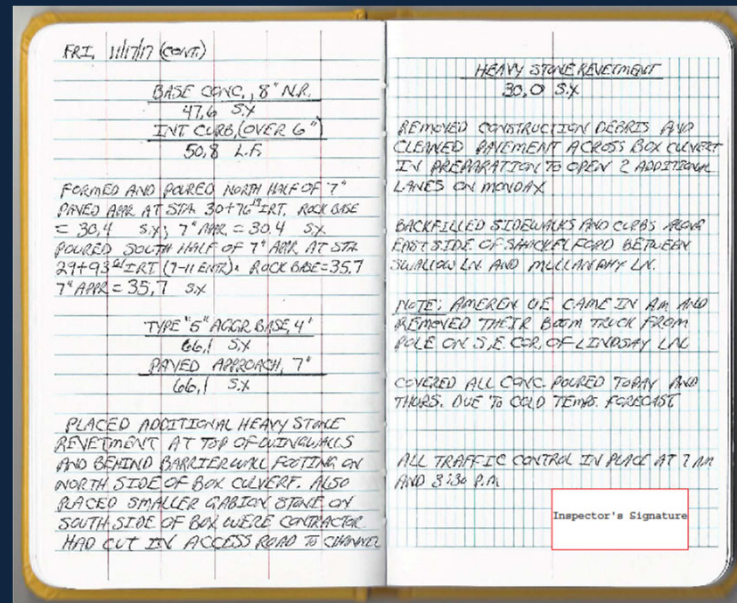 FRI, 11/17/17 (CONT.)
BASE CONC., 8" N.R.
47.6 S.Y.
INT CURB, (OVER 6")
50.8 L.F.
FORMED AND POURED NORTH HALF OF 7"
PAVED APPR. AT STA. 30+76 RT. ROCK BASE
= 30.4 S.Y.; 7" APPR. = 30.4 S.Y.
POURED SOUTH HALF OF 7" APPR. AT STA.
29+93 RT (7-11 ENTR). ROCK BASE = 35.7
7" APPR = 35.7 S.Y.
TYPE "5" AGGR. BASE, 4"
66.1 S.Y.
PAVED APPROACH, 7"
66.1 S.Y.
PLACED ADDITIONAL HEAVY STONE
REVETMENT AT TOP OF WINGWALLS
AND BEHIND BARRIER WALL FOOTING ON
NORTH SIDE OF BOX CULVERT. ALSO
PLACED SMALLER GABION STONE ON
SOUTH SIDE OF BOX WERE CONTRACTOR
HAD CUT IN ACCESS ROAD TO CHANNEL
HEAVY STONE REVETMENT
30.0 S.Y.
REMOVED CONSTRUCTION DEBRIS AND
CLEANED PAVEMENT ACROSS BOX CULVERT
IN PREPARATION TO OPEN 2 ADDITIONAL
LANES ON MONDAY.
BACKFILLED SIDEWALKS AND CURBS ALONG
EAST SIDE OF SHACKELFORD BETWEEN
SWALLOW LN. AND MULLANPHY LN.
NOTE: AMEREN UE CAME IN AM AND
REMOVED THEIR BOOM TRUCK FROM
POLE ON S.E. COR. OF LINDSAY LN.
COVERED ALL CONC. POURED TODAY AND
THURS. DUE TO COLD TEMPS. FORECAST
ALL TRAFFIC CONTROL IN PLACE AT 7 AM
AND 3:30 P.M.
Inspector's Signature